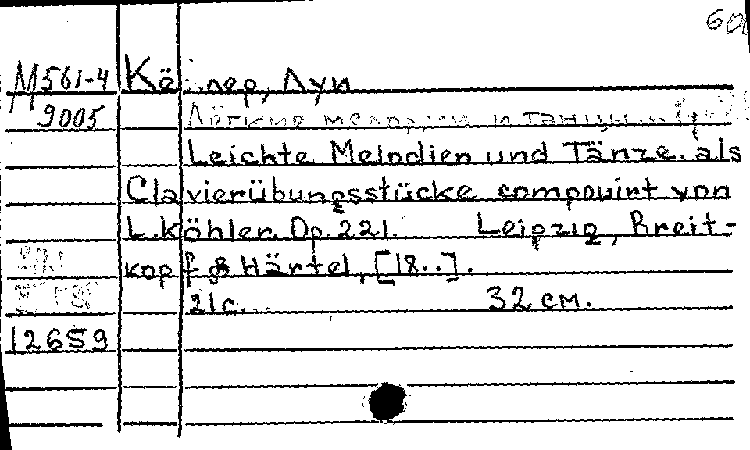 60
М 561-4 Кёлер, Луи
9005 Лёгкие мелодии и танцы...
Leichte Melodien und Tänze. als
Clavierübungsstücke componirt von
L. Köhler. Op. 221. Leipzig, Breit-
kopf & Härtel, [18..].
21 с. 32 см.
12659